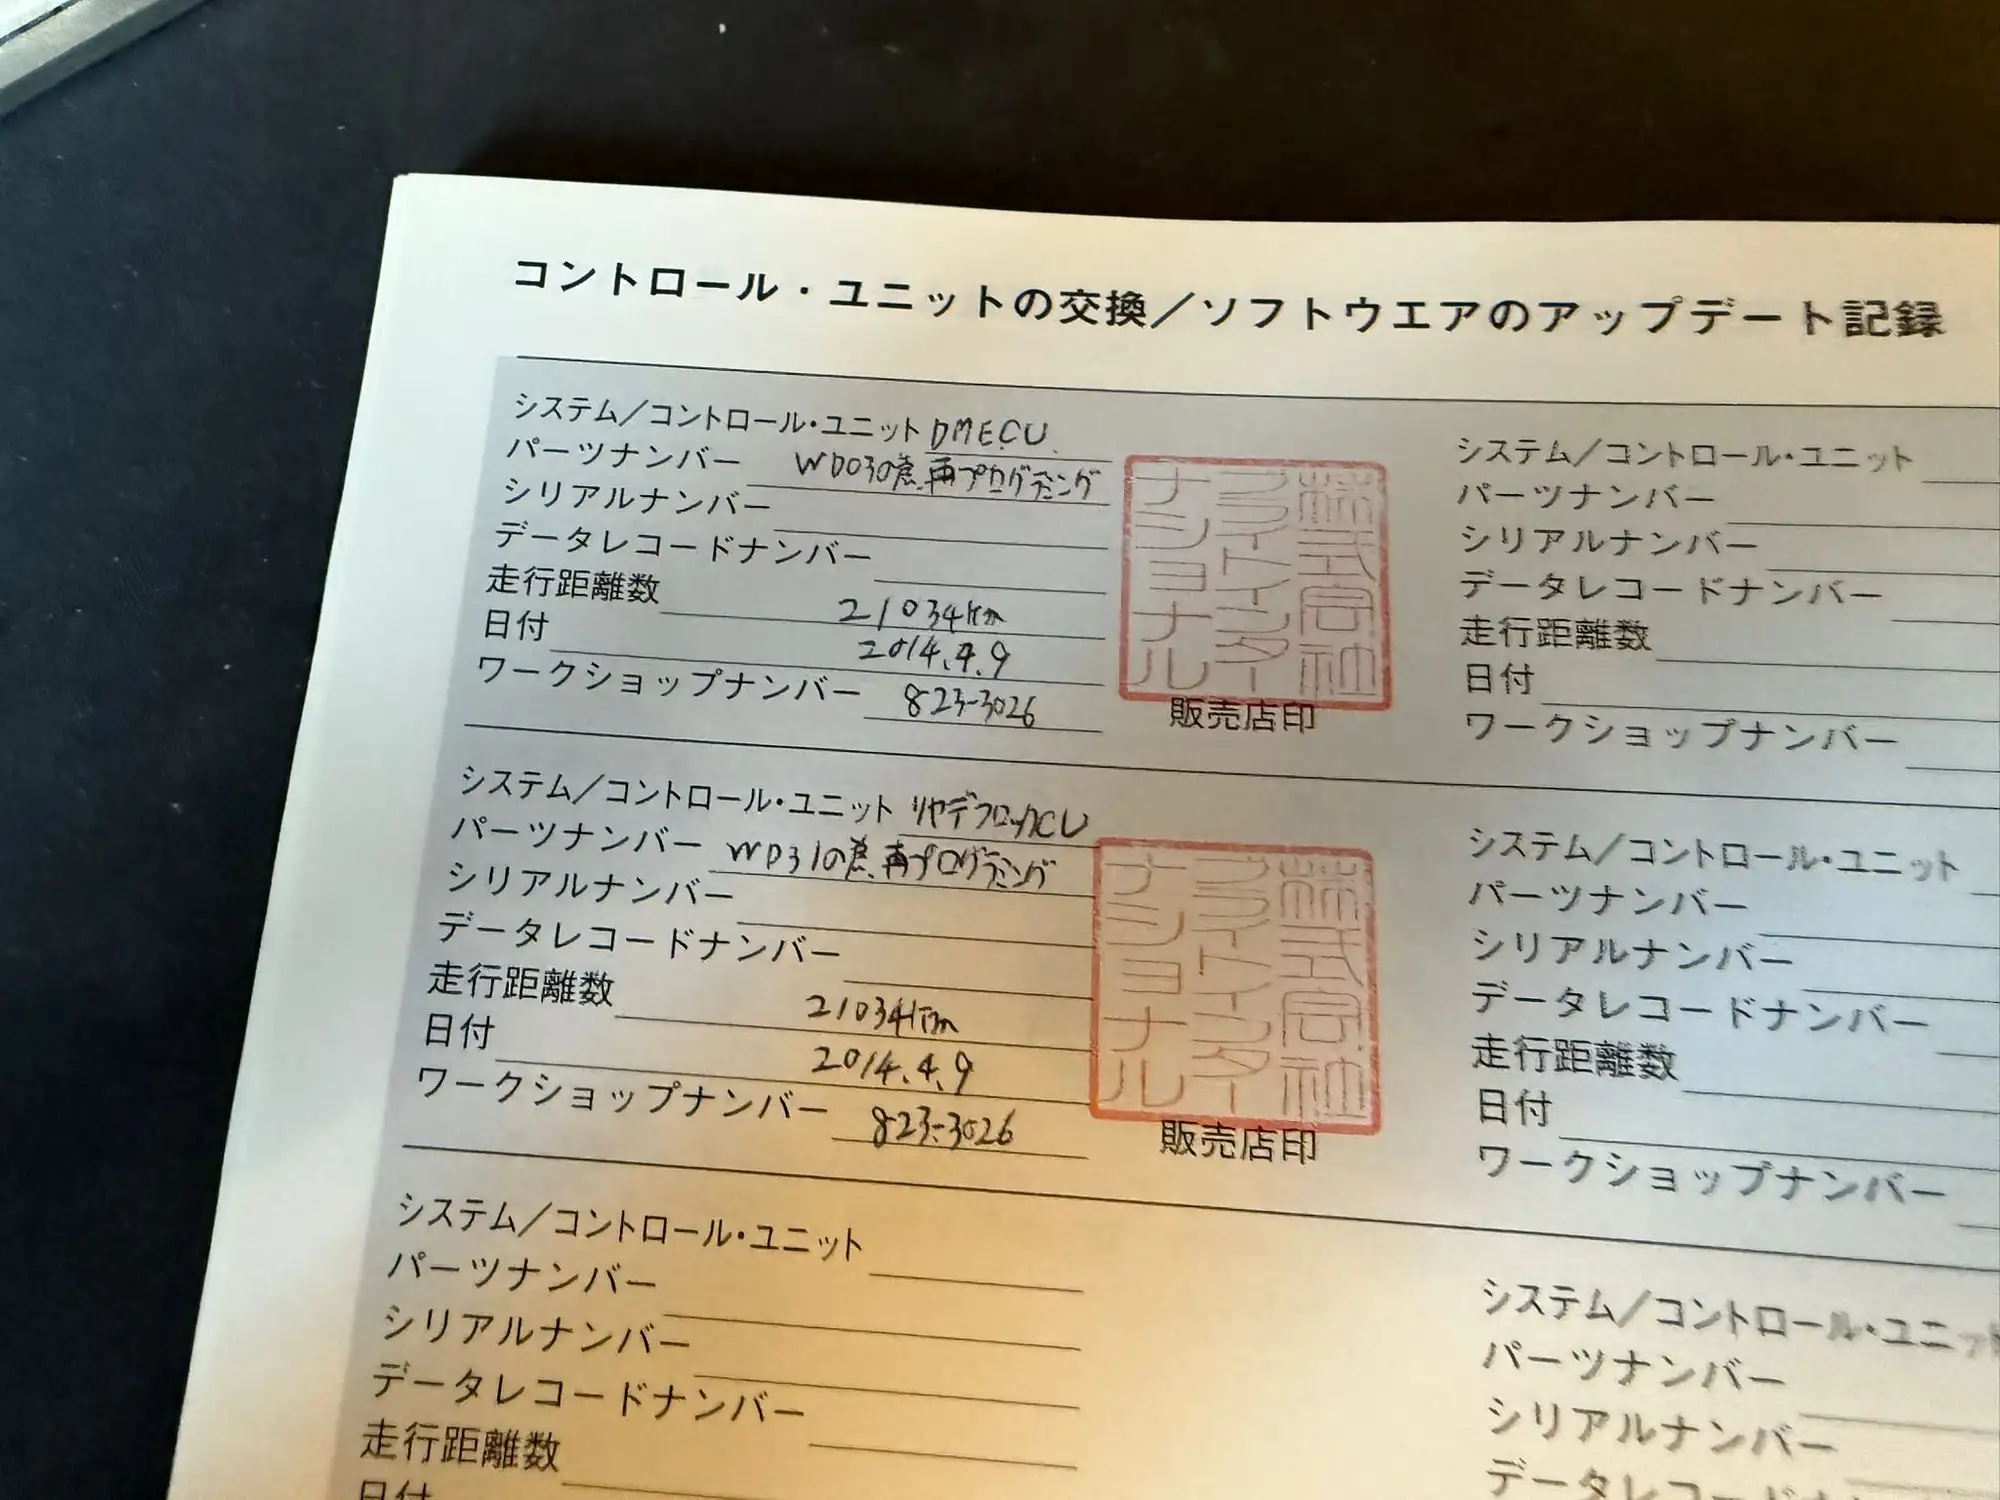 コントロール・ユニットの交換／ソフトウエアのアップデート記録
システム／コントロール・ユニット DMECU
パーツナンバー WD03の為、再プログラミング
シリアルナンバー
データレコードナンバー
走行距離数 21034km
日付 2014.4.9
ワークショップナンバー 823-3026
株式会社
ブライトインター
ナショナル
販売店印
システム／コントロール・ユニット リヤデフロックCU
パーツナンバー WD31の為、再プログラミング
シリアルナンバー
データレコードナンバー
走行距離数 21034km
日付 2014.4.9
ワークショップナンバー 823-3026
株式会社
ブライトインター
ナショナル
販売店印
システム／コントロール・ユニット
パーツナンバー
シリアルナンバー
データレコードナンバー
走行距離数
日付
システム／コントロール・ユニット
パーツナンバー
シリアルナンバー
データレコードナンバー
走行距離数
日付
ワークショップナンバー
システム／コントロール・ユニット
パーツナンバー
シリアルナンバー
データレコードナンバー
走行距離数
日付
ワークショップナンバー
システム／コントロール・ユニット
パーツナンバー
シリアルナンバー